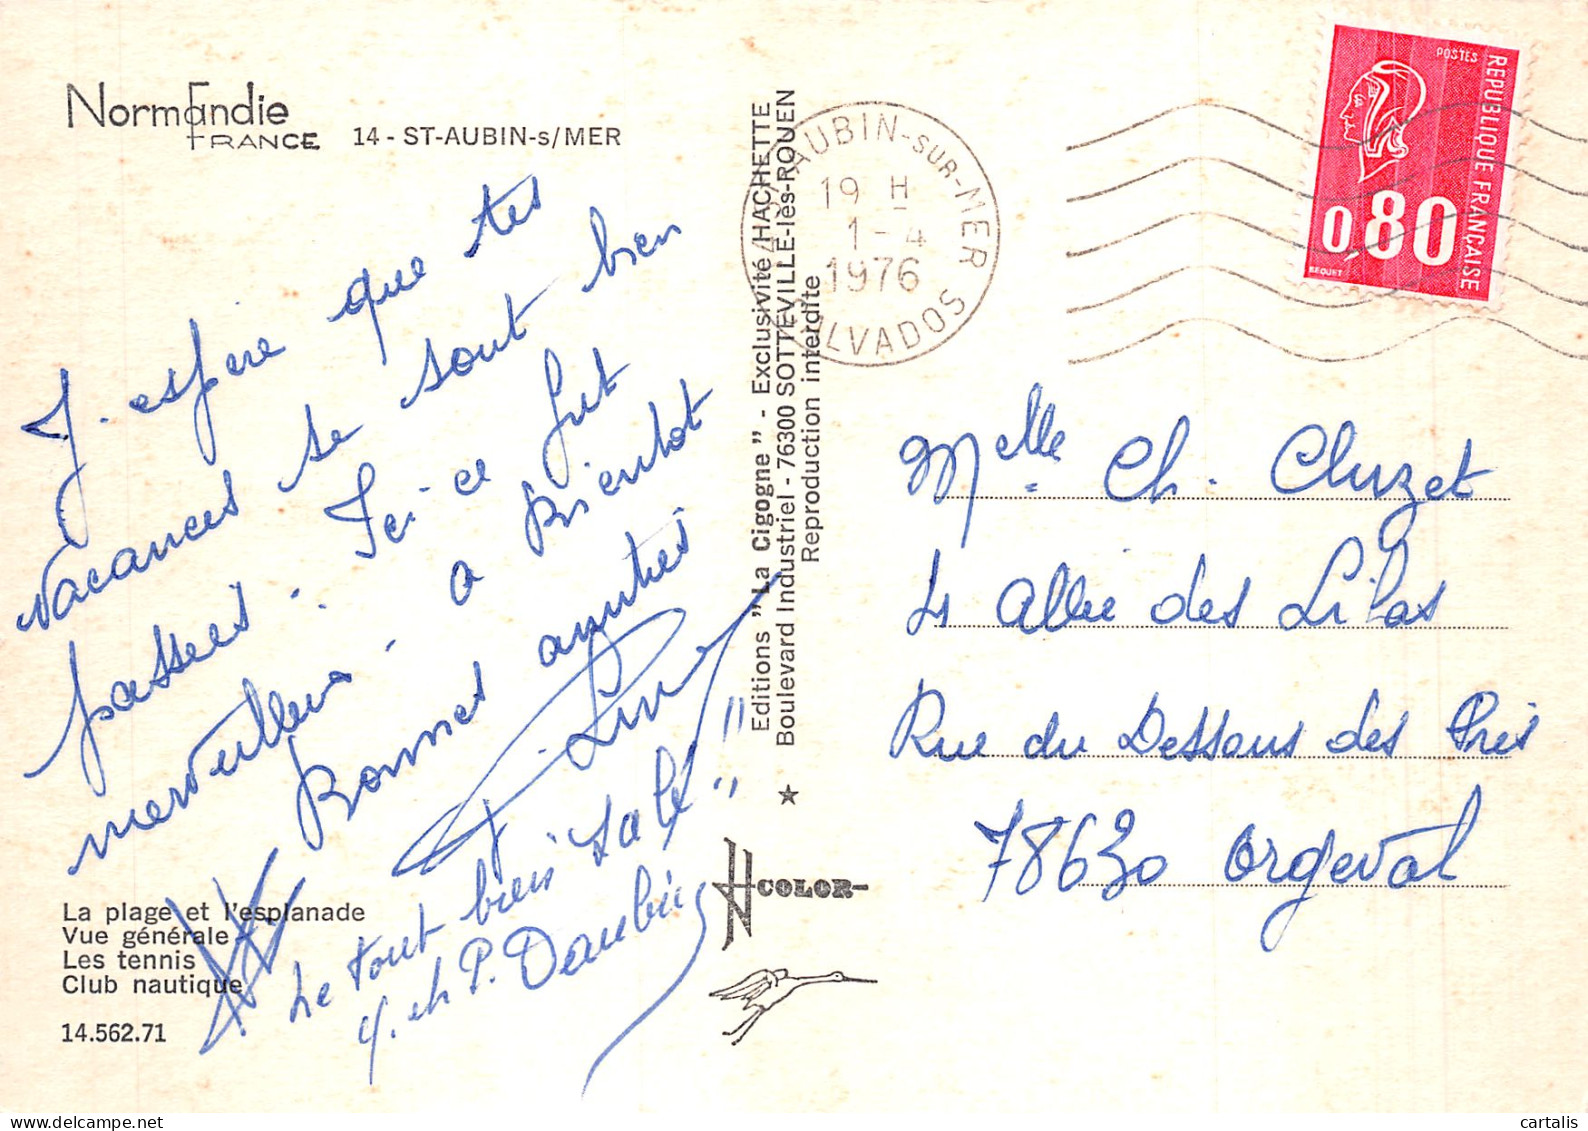 Normandie
FRANCE 14 - ST-AUBIN-s/MER
J'espère que tes
vacances se sont bien
passées. Ici ce fut
merveilleux. a Bientot
Bonnes amitiés
Le tout bien salé
La plage et l'esplanade
Vue générale
Les tennis
Club nautique
14.562.71
Editions "La Cigogne" - Exclusivité HACHETTE
Boulevard Industriel - 76300 SOTTEVILLE-lès-ROUEN
Reproduction interdite
COLOR
AUBIN-SUR-MER
19 H
1-4
1976
CALVADOS
POSTES
REPUBLIQUE FRANÇAISE
0,80
BEQUET
Melle Ch. Cluzet
4 allée des Lilas
Rue du Dessous des Prés
78630 Orgeval
cartalis